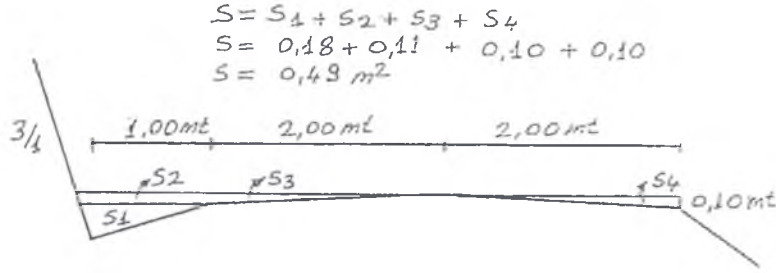 S = S1 + S2 + S3 + S4
S = 0,18 + 0,11 + 0,10 + 0,10
S = 0,49 m²
3/1
1,00mt 2,00mt 2,00mt
S2 S3 S4
S1
0,10mt